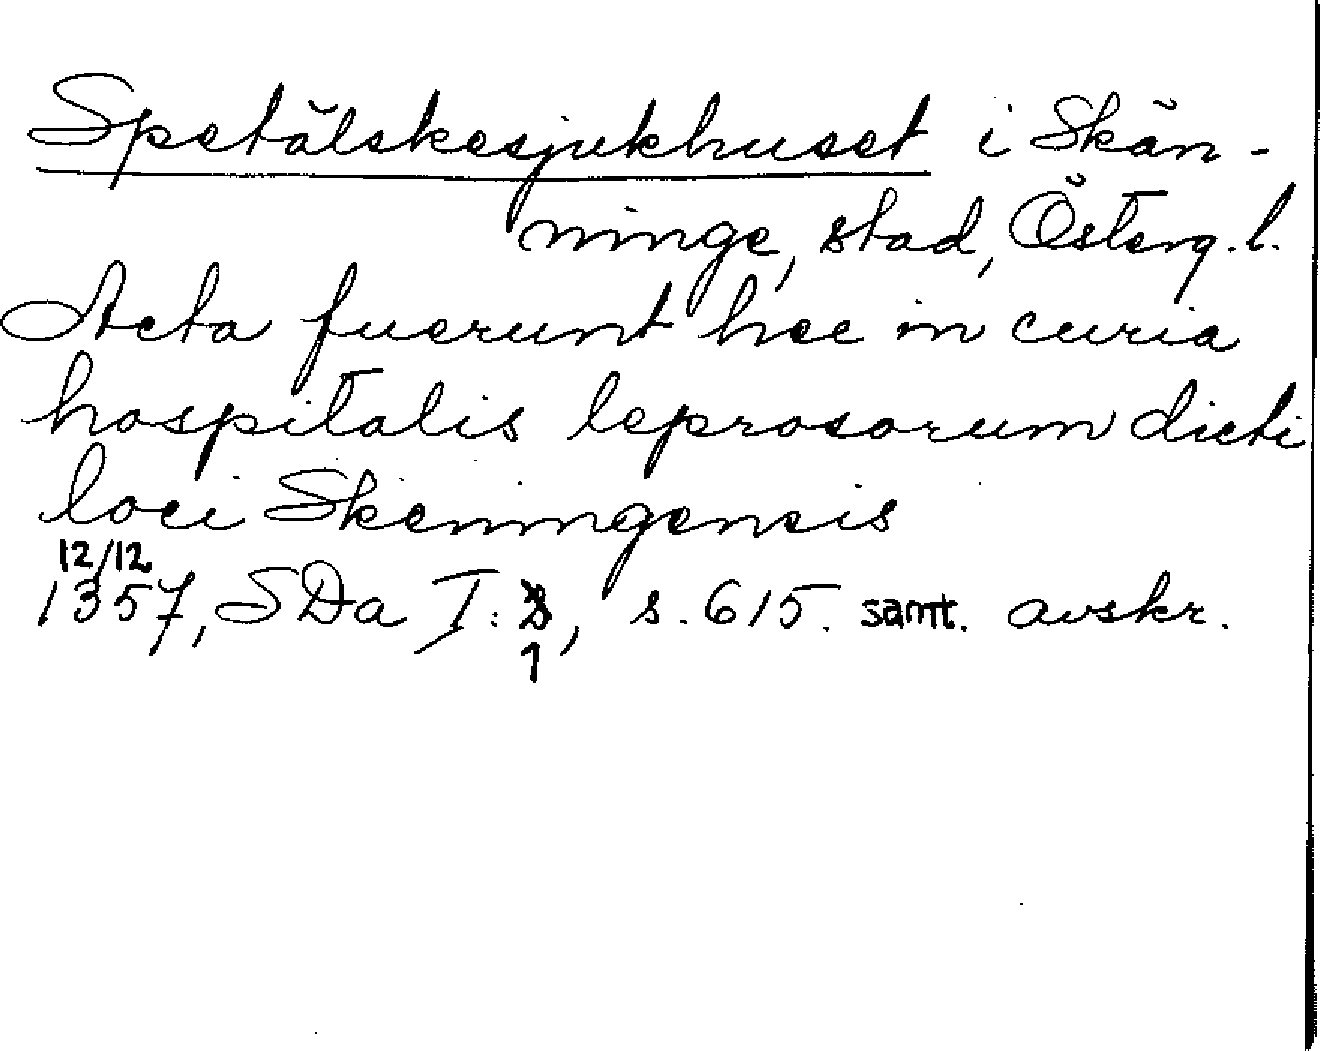 Spetälskesjukhuset i Skän-
ninge, stad, Österg. l.
Acta fuerunt hec in curia
hospitalis leprosorum dicti
loci Skeningensis
12/12
1357, SDa I: 1, s. 615. samt. avskr.